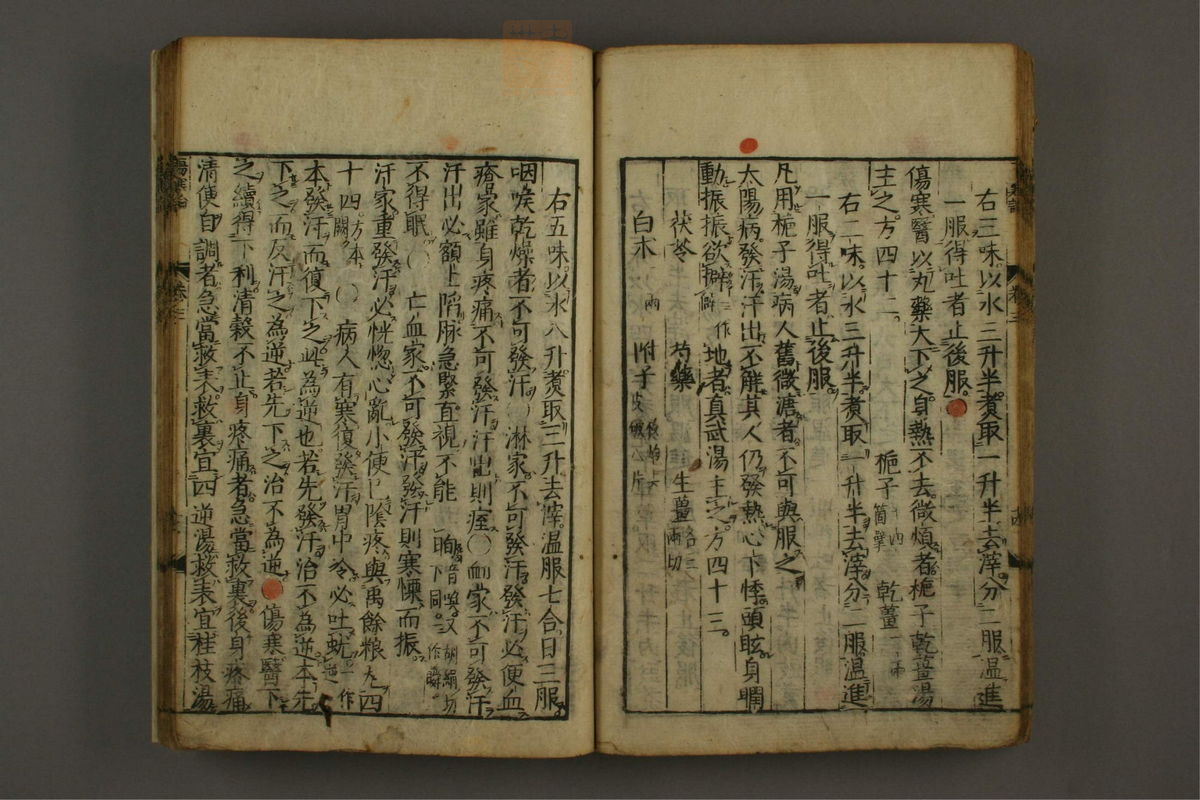 右三味以水三升半煑取一升半去滓分二服温進
一服得吐者止後服
傷寒醫以丸藥大下之身熱不去微煩者梔子乾薑湯
主之方四十二
梔子 乾薑二兩
右二味以水三升半煑取一升半去滓分二服温進
一服得吐者止後服
凡用梔子湯病人舊微溏者不可與服之
太陽病發汗汗出不解其人仍發熱心下悸頭眩身瞤
動振振欲擗地者真武湯主之方四十三
茯苓 芍藥 生薑各三兩切
白朮 附子
右五味以水八升煑取三升去滓温服七合日三服
咽喉乾燥者不可發汗〇淋家不可發汗發汗必便血
瘡家雖身疼痛不可發汗汗出則痓〇衄家不可發汗
汗出必額上陷脉急緊直視不能眴音喚又胡絹切下同作瞬
不得眠〇亡血家不可發汗發汗則寒慄而振
汗家重發汗必恍惚心亂小便已隂疼與禹餘粮丸四
十四方本闕〇病人有寒復發汗胃中冷必吐蚘一作逆
本發汗而復下之此為逆也若先發汗治不為逆本先
下之而反汗之為逆若先下之治不為逆 傷寒醫下
之續得下利清穀不止身疼痛者急當救裏後身疼痛
清便自調者急當救表救裏宜四逆湯救表宜桂枝湯